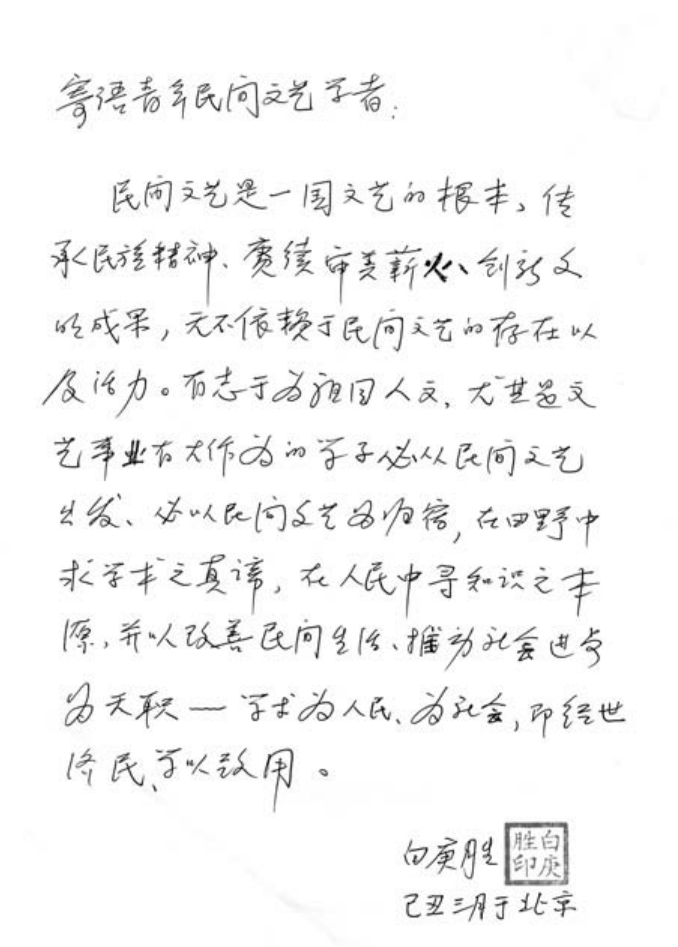 寄语青年民间文艺学者：
民间文艺是一国文艺的根本，传
承民族精神、赓续审美薪火、创新文
明成果，无不依赖于民间文艺的存在以
及活力。有志于为祖国人文，尤其是文
艺事业有大作为的学子必从民间文艺
出发、必以民间文艺为归宿，在田野中
求学术之真谛，在人民中寻知识之本
源，并以改善民间生活、推动社会进步
为天职——学术为人民、为社会，即经世
济民、学以致用。
白庚胜
白庚胜印
己丑三月于北京